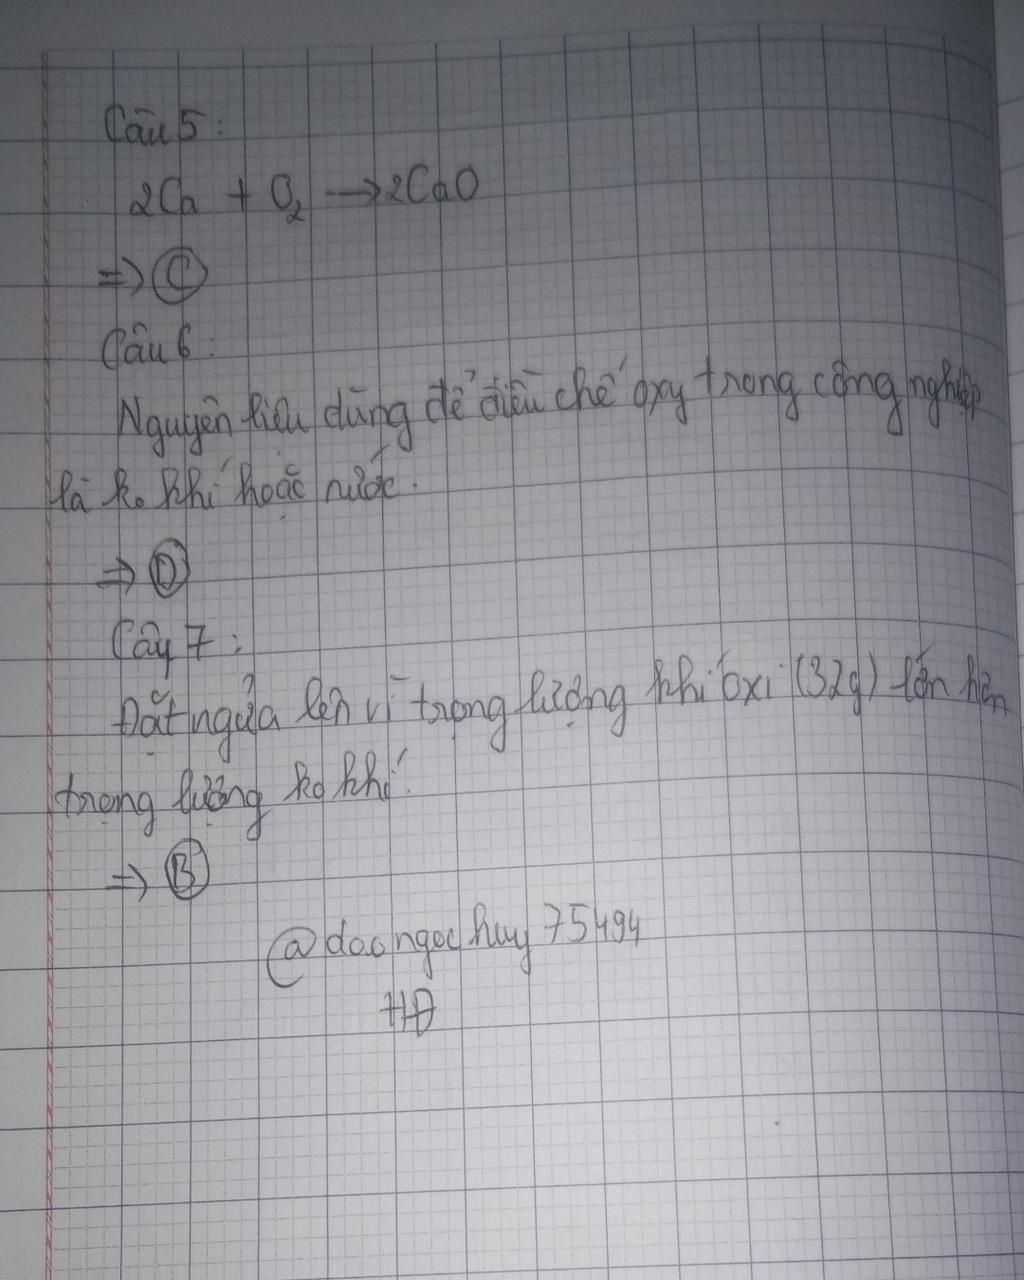 Câu 5:
2Ca + O₂ → 2CaO
=> C
Câu 6:
Nguyên liệu dùng để điều chế oxy trong công nghiệp
là ko khí hoặc nước.
=> D
Câu 7:
Đặt ngửa lên vì trọng lượng khí oxi (32g) lớn hơn
trọng lượng ko khí.
=> B
@daongochuy75494
HĐ